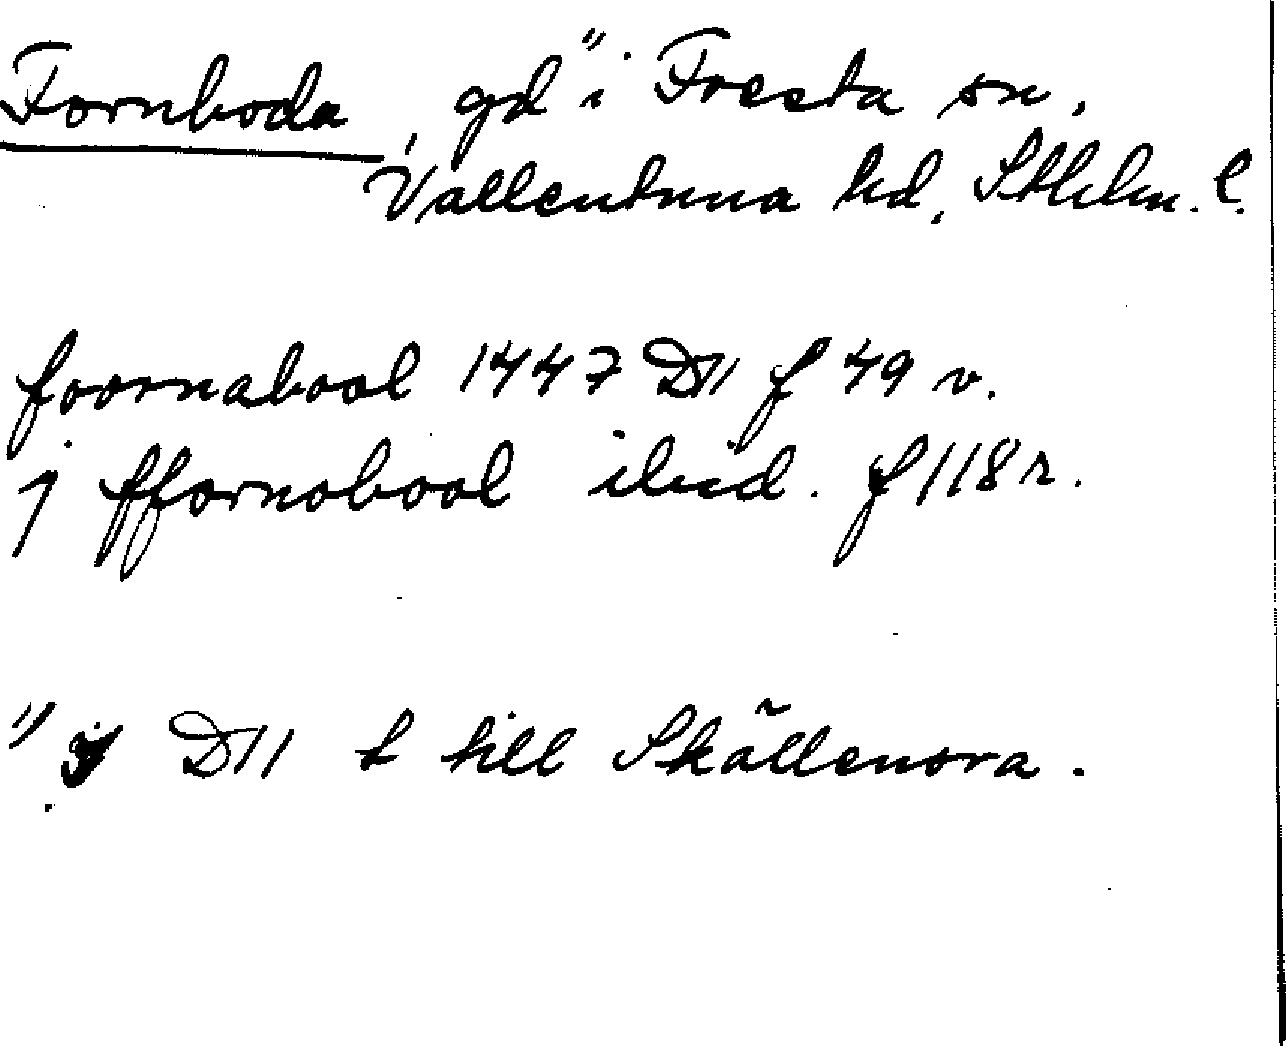 Fornboda, gd" i Fresta sn,
Vallentuna hd, Sthlm. l.
foornabool 1447 D11 f 49 v.
j ffornobool ibid. f 118 r.
" i D11 t till Skällnora.